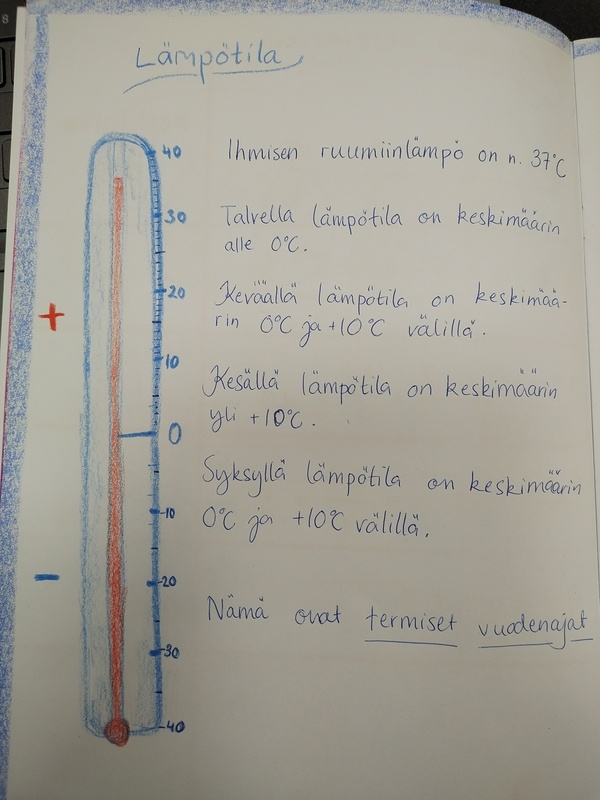 Lämpötila
40
30
20
10
0
-10
-20
-30
-40
+
-
Ihmisen ruumiinlämpö on n. 37°C
Talvella lämpötila on keskimäärin
alle 0°C.
Keväällä lämpötila on keskimää-
rin 0°C ja +10°C välillä.
Kesällä lämpötila on keskimäärin
yli +10°C.
Syksyllä lämpötila on keskimäärin
0°C ja +10°C välillä.
Nämä ovat termiset vuodenajat
8